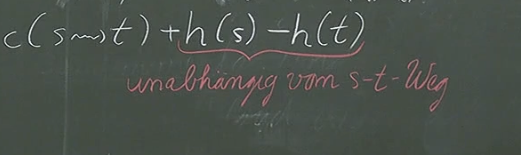 c(s⇝t) + h(s) - h(t)
unabhängig vom s-t-Weg